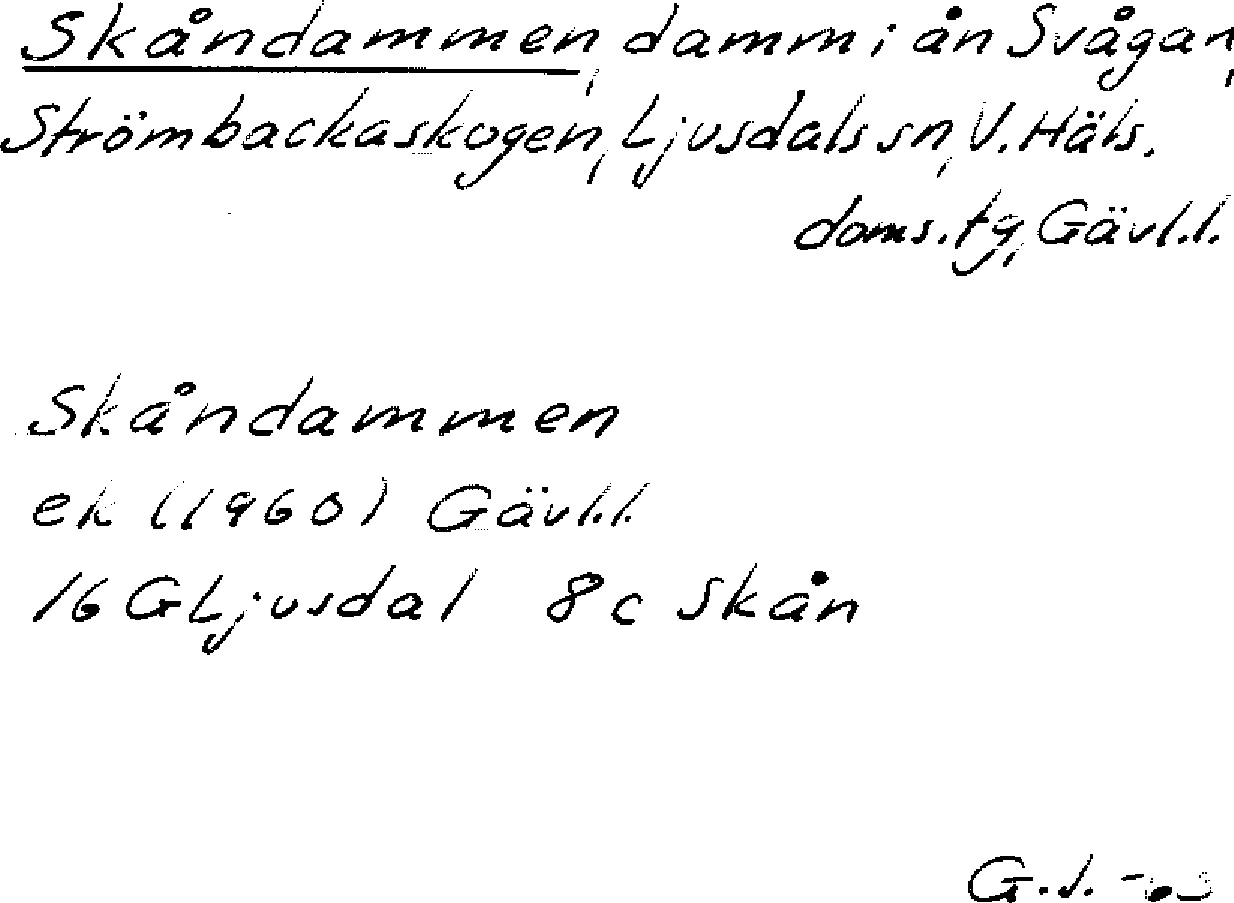 Skåndammen, damm i ån Svågan,
Strömbackaskogen, Ljusdals sn, V. Häls.
doms.tg, Gävl.l.
Skåndammen
ek (1960) Gävl.l.
16 G Ljusdal 8c Skån
G.J.